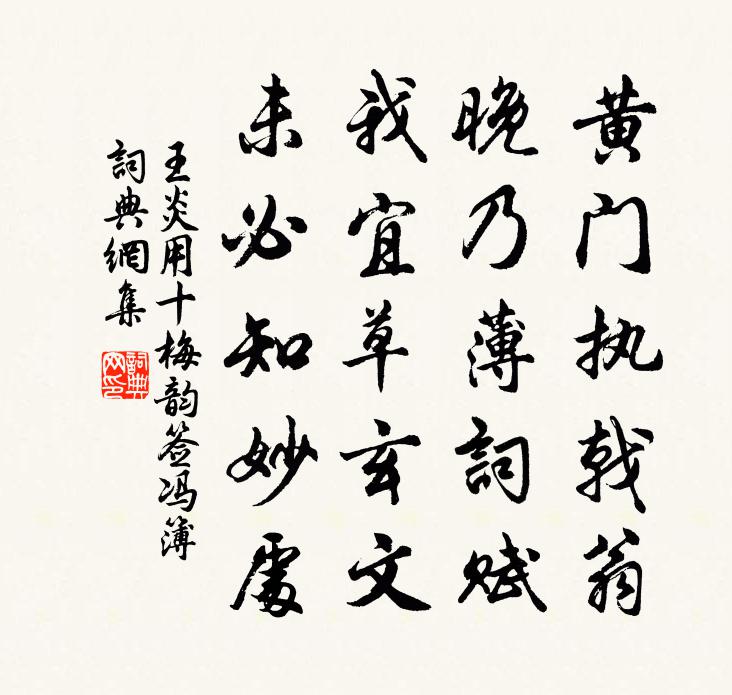 黄门执戟翁
晚乃薄詞赋
我宜草玄文
未必知妙處
王炎用十梅韵签冯簿
詞典網集
詞典网印